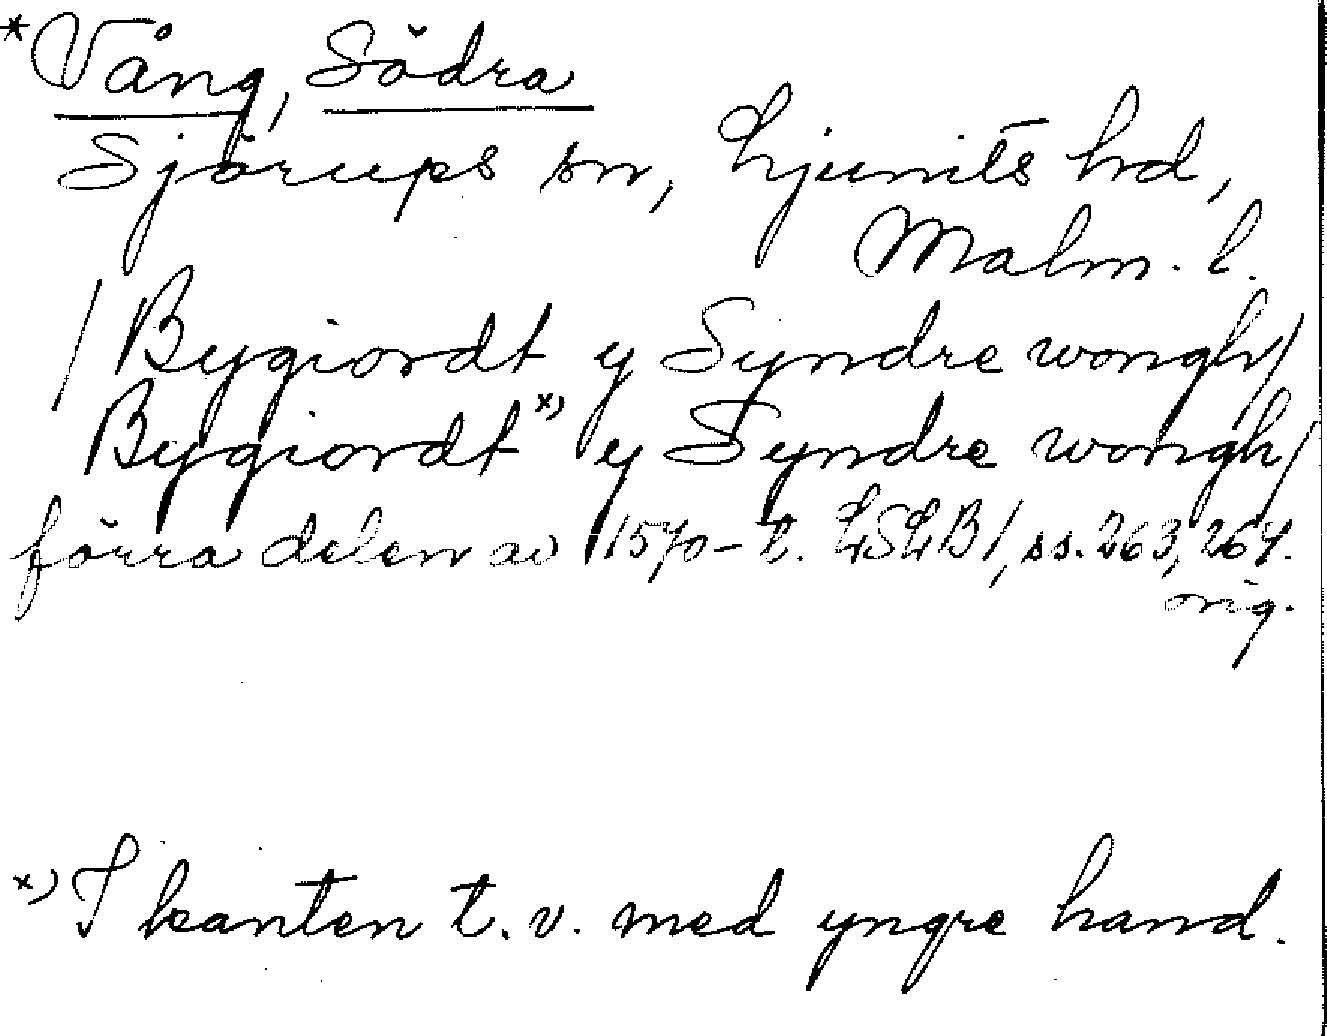 *Vång, Södra
Sjörups sn, Ljunits hd,
Malm. l.
/Bygiordt y Syndre wongh/
Bygiordt x) y Syndre wongh/
förra delen av 1570-t. LSLB1, ss. 263, 264.
orig.
x) I kanten t.v. med yngre hand.